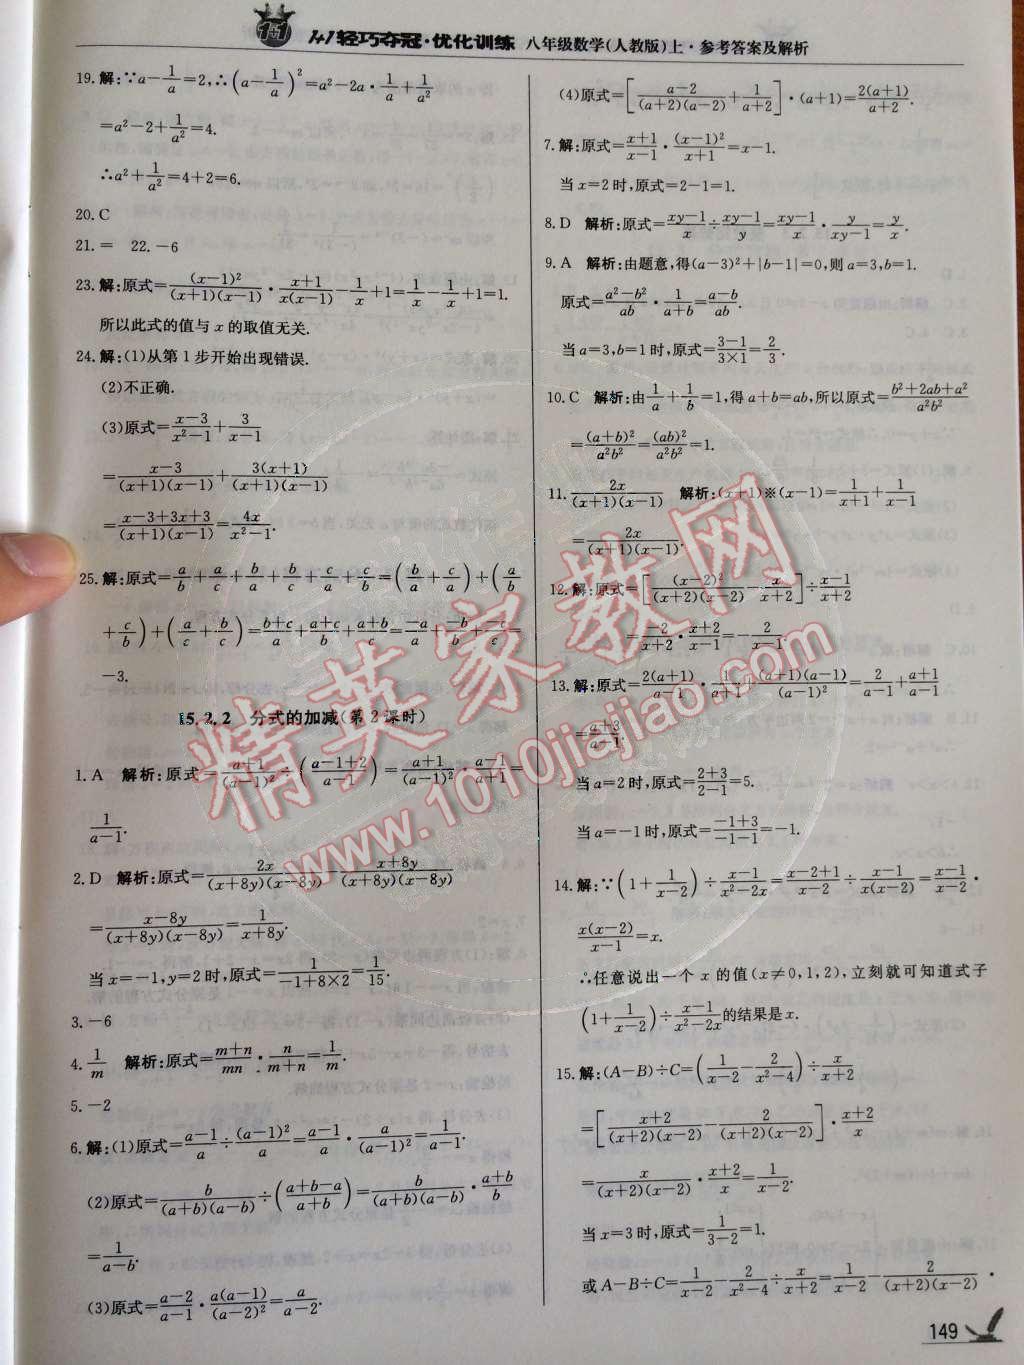 1+1 轻巧夺冠·优化训练 八年级数学(人教版)上·参考答案及解析
19.解:∵a-1/a=2,∴(a-1/a)²=a²-2a·1/a+1/a²
=a²-2+1/a²=4.
∴a²+1/a²=4+2=6.
20.C
21.= 22.-6
23.解:原式=(x-1)²/(x+1)(x-1)·(x+1)/x(x-1)-1/x+1=1/x-1/x+1=1.
所以此式的值与 x 的取值无关.
24.解:(1)从第 1 步开始出现错误.
(2)不正确.
(3)原式=(x-3)/(x²-1)+3/(x-1)
=(x-3)/(x+1)(x-1)+3(x+1)/(x+1)(x-1)
=(x-3+3x+3)/(x+1)(x-1)=4x/(x²-1).
25.解:原式=a/b+a/c+b/a+b/c+c/a+c/b=(b/a+c/a)+(a/b
+c/b)+(a/c+b/c)=(b+c)/a+(a+c)/b+(a+b)/c=-a/a+-b/b+-c/c=
-3.
15.2.2 分式的加减(第 2 课时)
1.A 解析:原式=(a+1)/(a-1)²÷((a-1+2)/(a-1))=(a+1)/(a-1)²·(a-1)/(a+1)=
1/(a-1).
2.D 解析:原式=2x/(x+8y)(x-8y)-(x+8y)/(x+8y)(x-8y)
=(x-8y)/(x+8y)(x-8y)=1/(x+8y).
当 x=-1,y=2 时,原式=1/(-1+8×2)=1/15.
3.-6
4.1/m 解析:原式=(m+n)/mn·n/(m+n)=1/m.
5.-2
6.解:(1)原式=(a-1)/a÷(a-1)²/a=(a-1)/a·a/(a-1)²=1/(a-1).
(2)原式=b/(a+b)(a-b)÷((a+b-a)/(a+b))=b/(a+b)(a-b)·(a+b)/b
=1/(a-b).
(3)原式=(a-2)/(a-1)·a(a-1)/(a-2)²=a/(a-2).
(4)原式=[(a-2)/(a+2)(a-2)+1/(a+2)]·(a+1)=2(a+1)/(a+2).
7.解:原式=(x+1)/(x-1)·(x-1)²/(x+1)=x-1.
当 x=2 时,原式=2-1=1.
8.D 解析:原式=(xy-1)/x÷(xy-1)/y=(xy-1)/x·y/(xy-1)=y/x.
9.A 解析:由题意,得(a-3)²+|b-1|=0,则 a=3,b=1.
原式=(a²-b²)/ab·1/(a+b)=(a-b)/ab.
当 a=3,b=1 时,原式=(3-1)/(3×1)=2/3.
10.C 解析:由1/a+1/b=1,得 a+b=ab,所以原式=(b²+2ab+a²)/a²b²
=(a+b)²/a²b²=(ab)²/a²b²=1.
11.2x/(x+1)(x-1) 解析:(x+1)※(x-1)=1/(x+1)+1/(x-1)
=2x/(x+1)(x-1).
12.解:原式=[(x-2)²/(x+2)(x-2)-x/(x+2)]÷(x-1)/(x+2)
=-2/(x+2)·(x+2)/(x-1)=-2/(x-1).
13.解:原式=2(a+1)/(a-1)·1/(a+1)+(a+1)(a-1)/(a-1)²=2/(a-1)+(a+1)/(a-1)
=(a+3)/(a-1).
当 a=2 时,原式=(2+3)/(2-1)=5.
当 a=-1 时,原式=(-1+3)/(-1-1)=-1.
14.解:∵(1+1/(x-2))÷(x-1)/(x²-2x)=(x-2+1)/(x-2)÷(x-1)/x(x-2)=(x-1)/(x-2)·
x(x-2)/(x-1)=x.
∴任意说出一个 x 的值(x≠0,1,2),立刻就可知道式子
(1+1/(x-2))÷(x-1)/(x²-2x)的结果是 x.
15.解:(A-B)÷C=(1/(x-2)-2/(x²-4))÷x/(x+2)
=[(x+2)/(x+2)(x-2)-2/(x+2)(x-2)]·(x+2)/x
=x/(x+2)(x-2)·(x+2)/x=1/(x-2).
当 x=3 时,原式=1/(3-2)=1.
或 A-B÷C=1/(x-2)-2/(x²-4)÷x/(x+2)=1/(x-2)-2/(x+2)(x-2)·
149
精英家教网
www.1010jiajiao.com